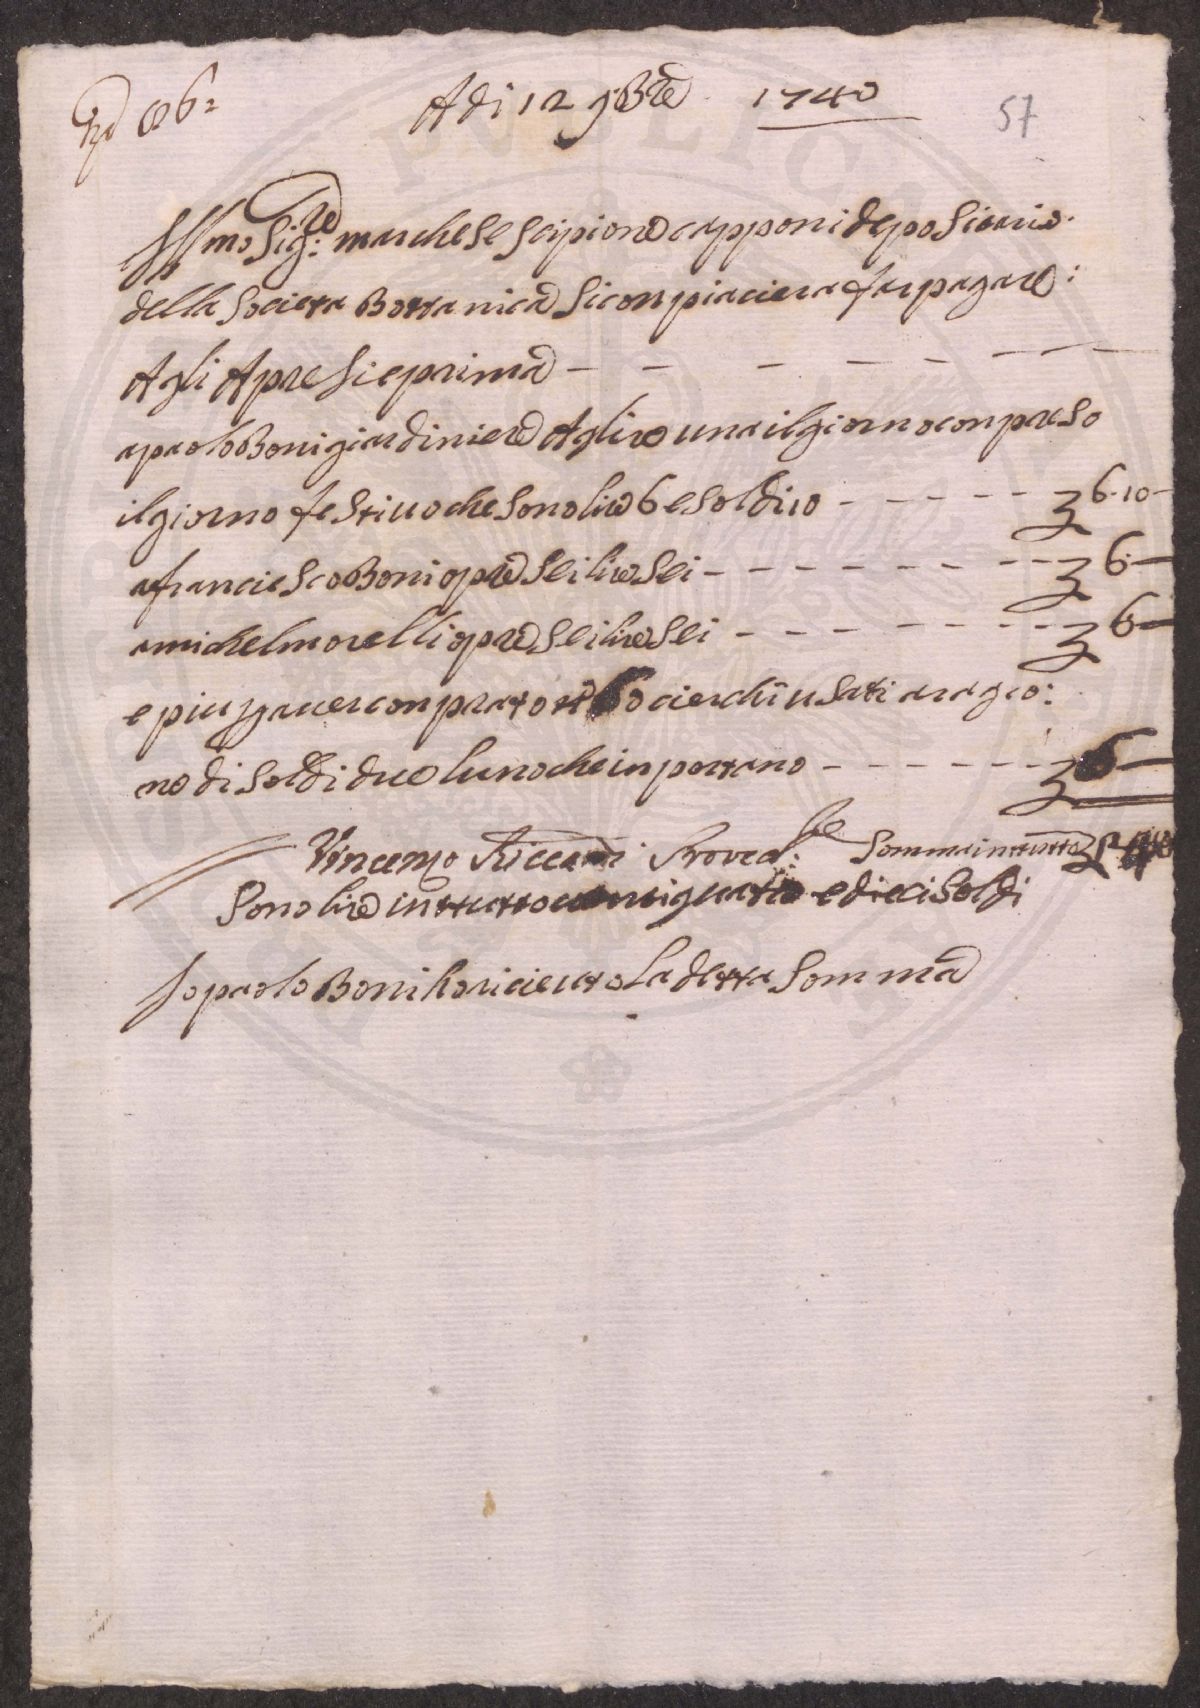 Adi 12 9bre 1740
57
Illmo Sigre: marchese scipione capponi depositario
della Societa Bottanica si conpiaciera far pagare:
Agli Apresi e prima
a paolo Boni giardiniere A lire una il giorno conpreso
il giorno festivo che sono lire 6 e soldi 10 6.10
a franciesco Boni opre sei lire sei 6
a michel morelli opre sei lire sei 6
e piu p aver conprato no 60 cierchi usati a ragio:
ne di soldi due l'uno che inportano 6
Vincenzo Riccardi Proved:re Somma in tutto
Sono lire in tutto ventiquatro e dieci soldi
Io paolo Boni ho riceuto la detta Somma